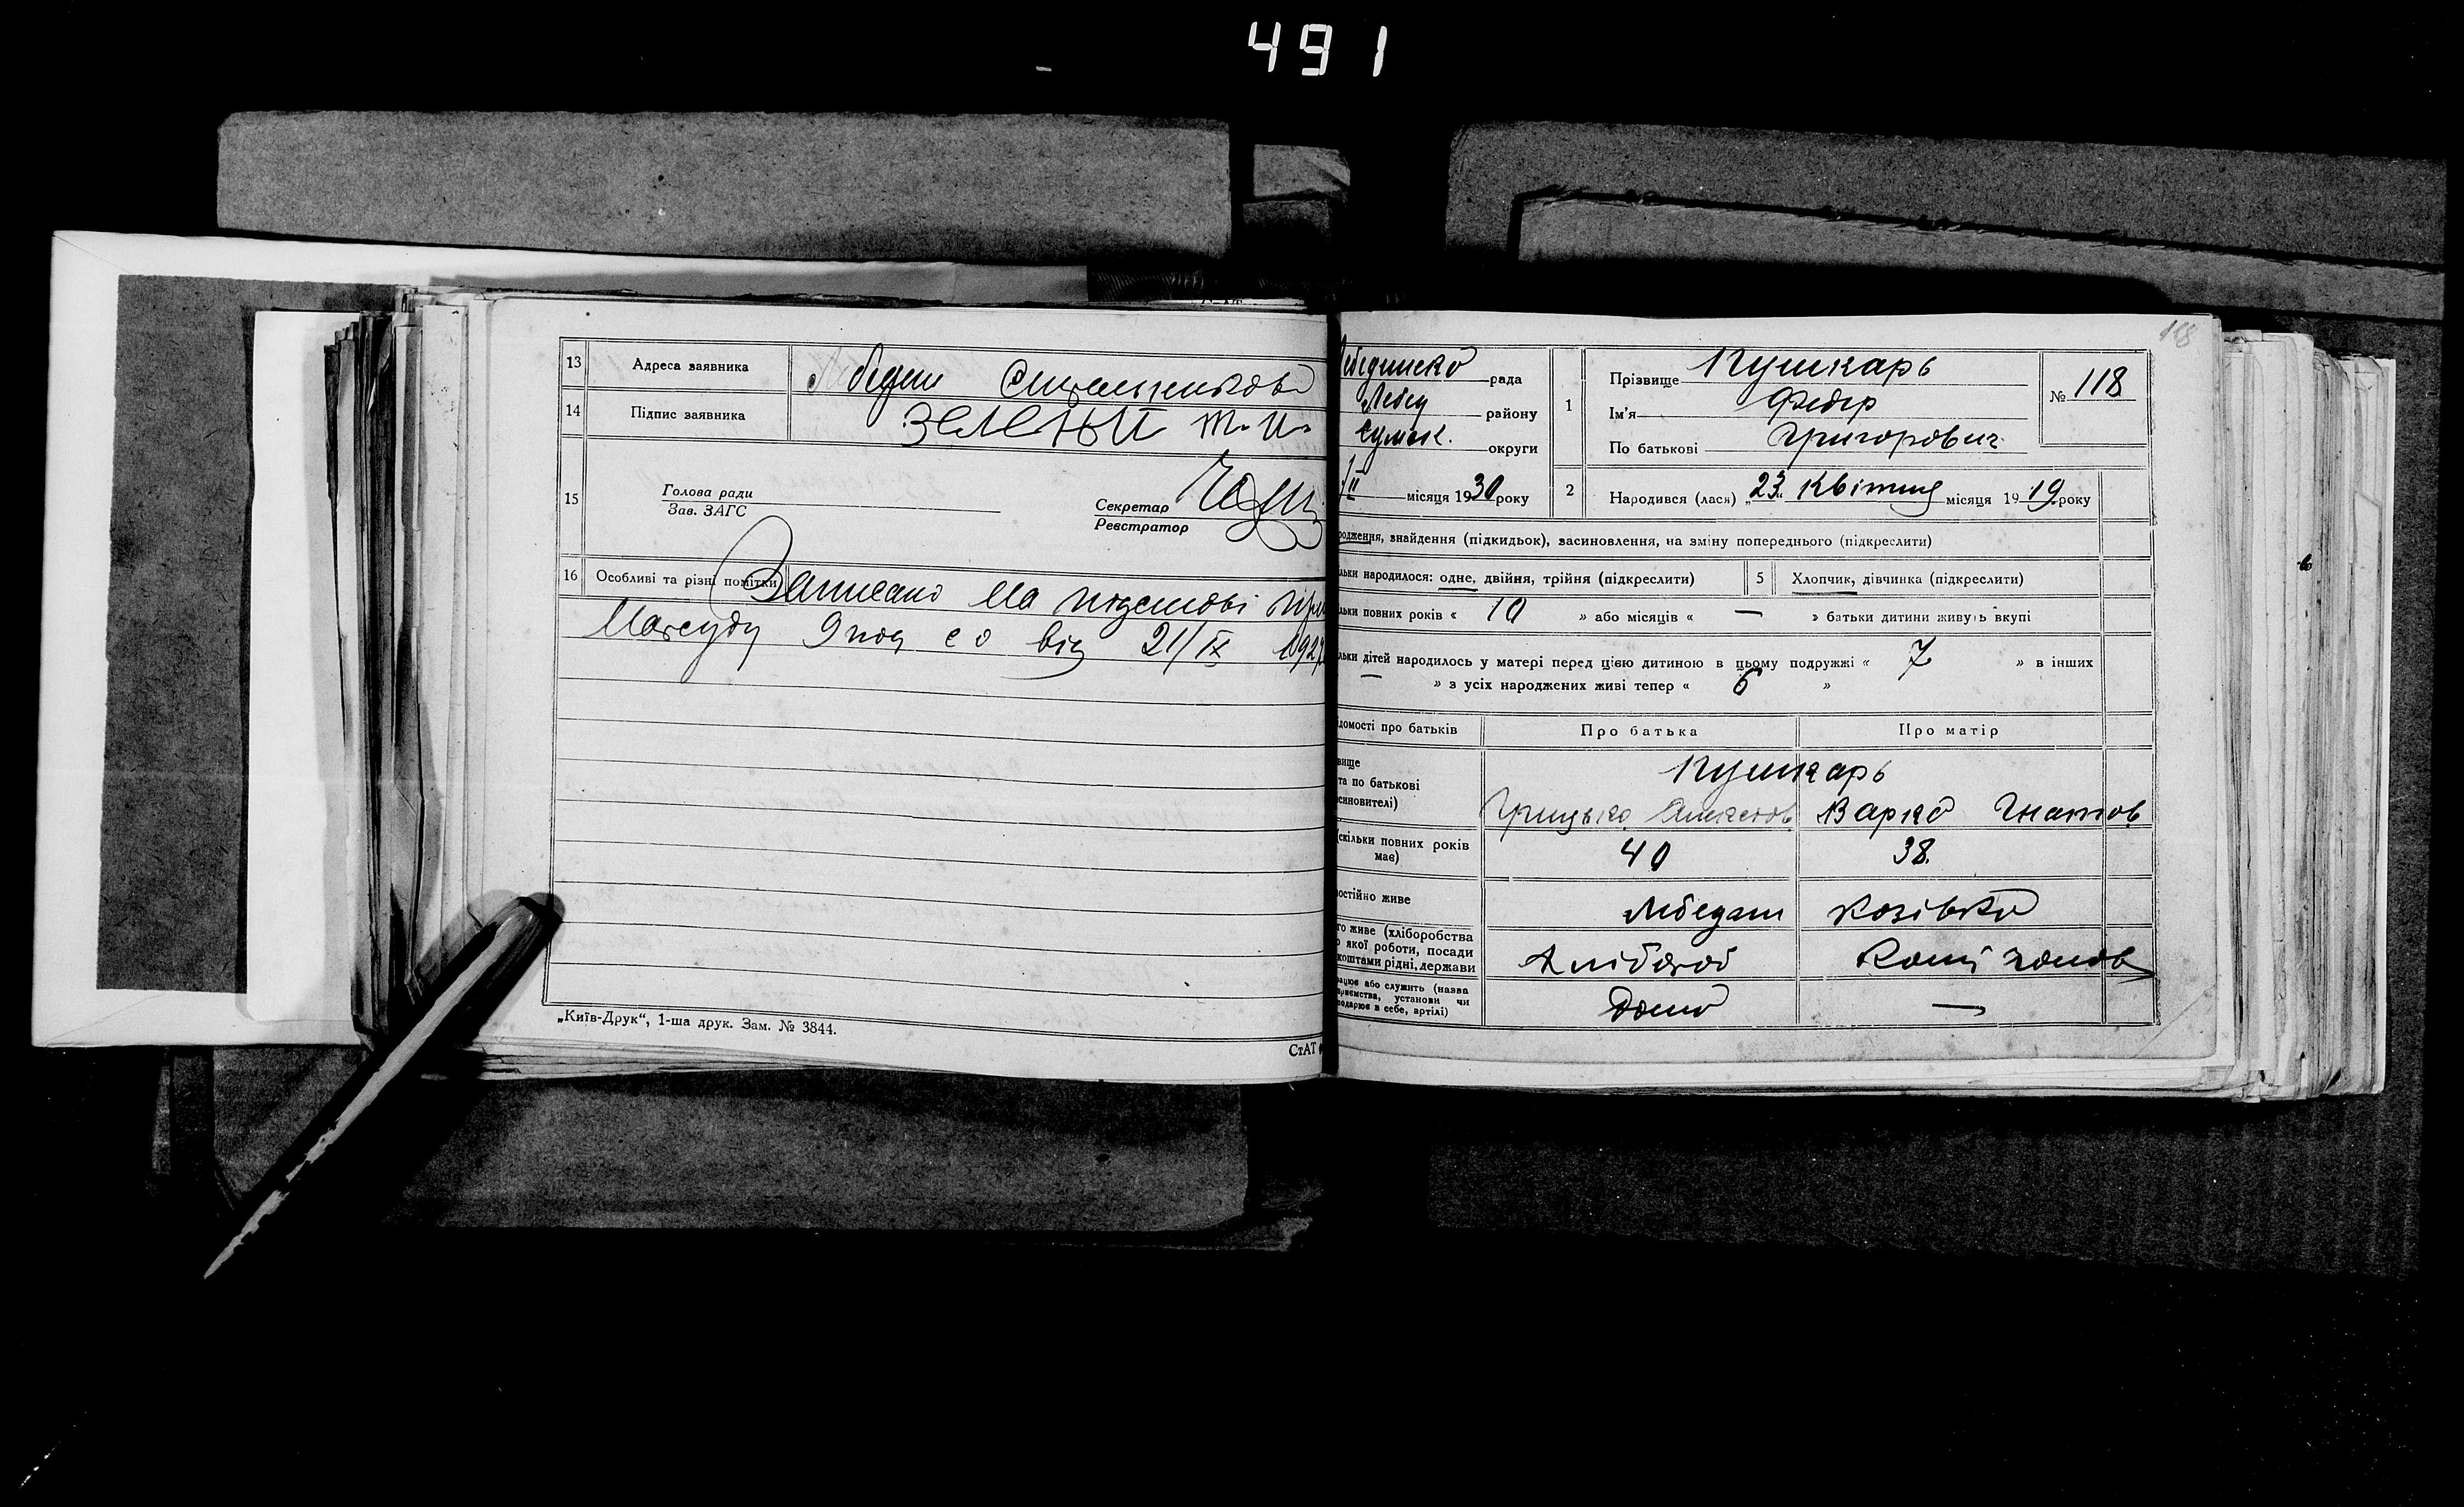 491
13 Адреса заявника
14 Підпис заявника ЗЕЛЕНЫЙ Т. И.
15 Голова ради
Зав. ЗАГС
Секретар
Реєстратор
16 Особливі та різні помітки Записано на підставі
9 под со від 21/IX 192
„Київ-Друк“, 1-ша друк. Зам. № 3844.
СтАТ
118
рада
Лебед району
Сумськ. округи
місяця 1930 року
1 Прізвище Пушкарь
Ім'я Федір
По батькові Григорович
№ 118
2 Народився (лася) „23„ квітня місяця 1919 року
родження, знайдення (підкидьок), засиновлення, на зміну попереднього (підкреслити)
льки народилося: одне, двійня, трійня (підкреслити) 5 Хлопчик, дівчинка (підкреслити)
льки повних років « 10 » або місяців « — » батьки дитини живуть вкупі
льки дітей народилось у матері перед цією дитиною в цьому подружжі « 7 » в інших
— » з усіх народжених живі тепер « 6 »
домості про батьків Про батька Про матір
вище
та по батькові
синовителі)
Пушкарь
Грицько Варка Гнатов
(скільки повних років
має) 40 38.
остійно живе Лебедин Козівка
го живе (хліборобства
о якої роботи, посади
коштами рідні, держави
Хлібороб
ацює або служить (назва
приємства, установи чи
подарює в себе, артілі)
дома —